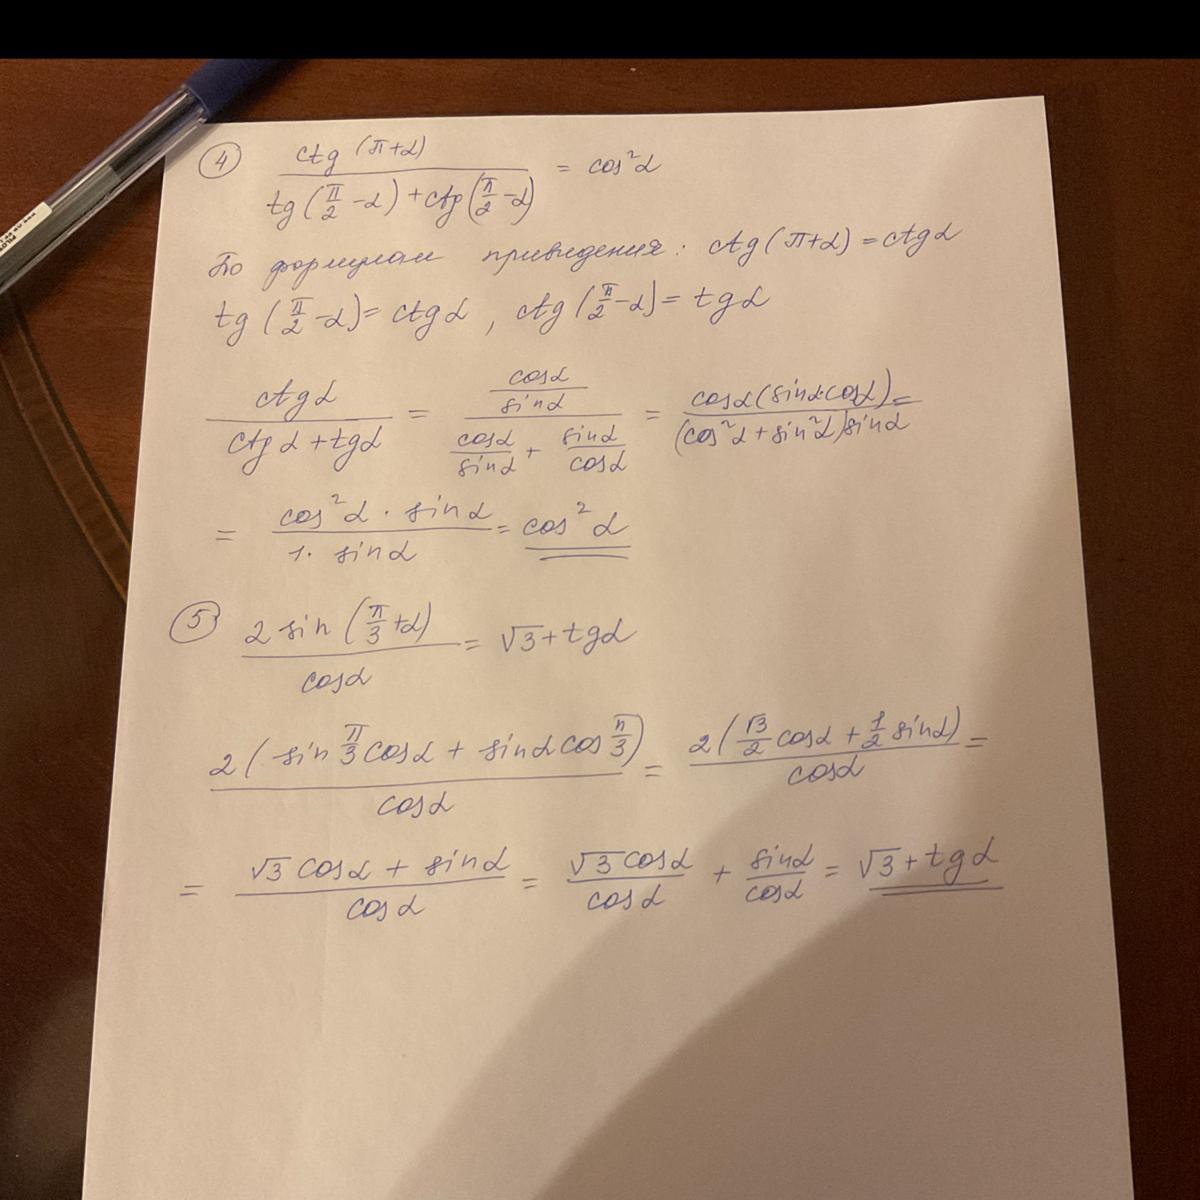 ④ ctg (π+α) / (tg(π/2 - α) + ctg(π/2 - α)) = cos²α
По формулам приведения: ctg(π+α) = ctgα
tg(π/2 - α) = ctgα, ctg(π/2 - α) = tgα
ctgα / (ctgα + tgα) = (cosα/sinα) / (cosα/sinα + sinα/cosα) = cosα(sinα·cosα) / ((cos²α + sin²α)sinα) =
= (cos²α · sinα) / (1 · sinα) = cos²α
⑤ 2 sin(π/3 + α) / cosα = √3 + tgα
2(sin π/3 cosα + sinα cos π/3) / cosα = 2(√3/2 cosα + 1/2 sinα) / cosα =
= (√3 cosα + sinα) / cosα = √3 cosα / cosα + sinα / cosα = √3 + tgα